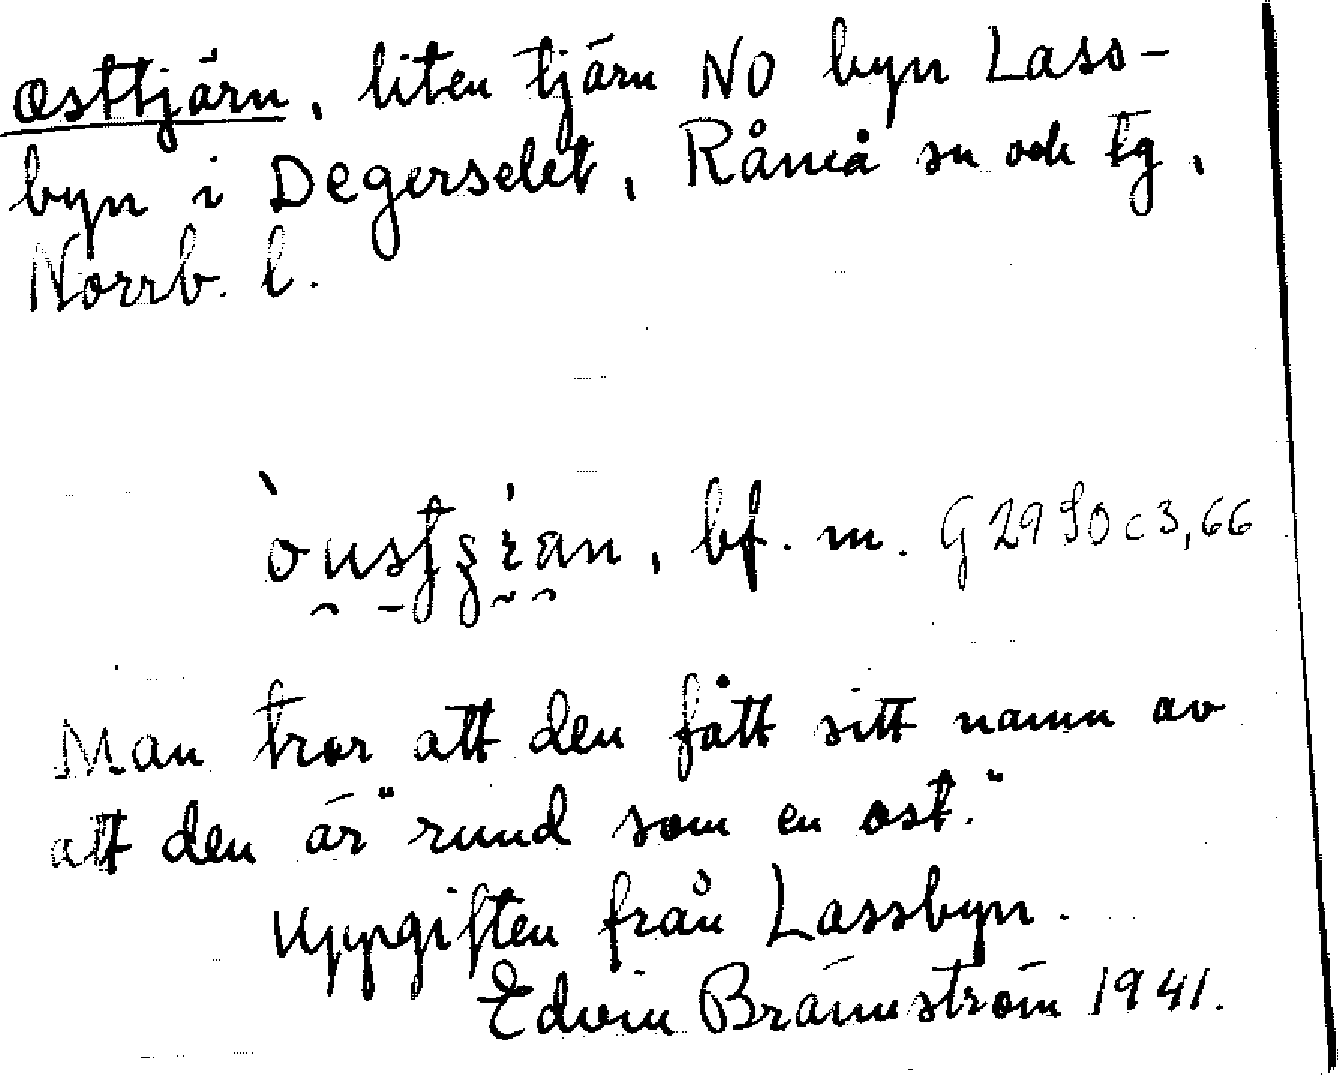 Osttjärn, liten tjärn NO byn Lass-
byn i Degerselet, Råneå sn och tg,
Norrb. l.
bf. m. G 2990 c 3,66
Man tror att den fått sitt namn av
att den är "rund som en ost."
Uppgiften från Lassbyn.
Edvin Brännström 1941.